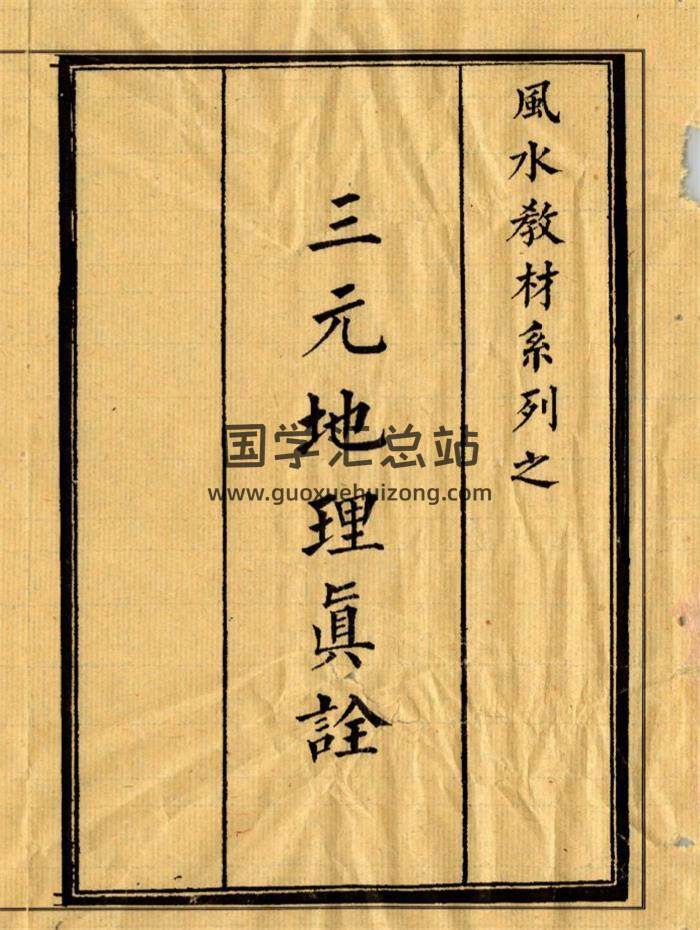 風水敎材系列之
三元地理眞詮
国学汇总站
www.guoxuehuizong.com